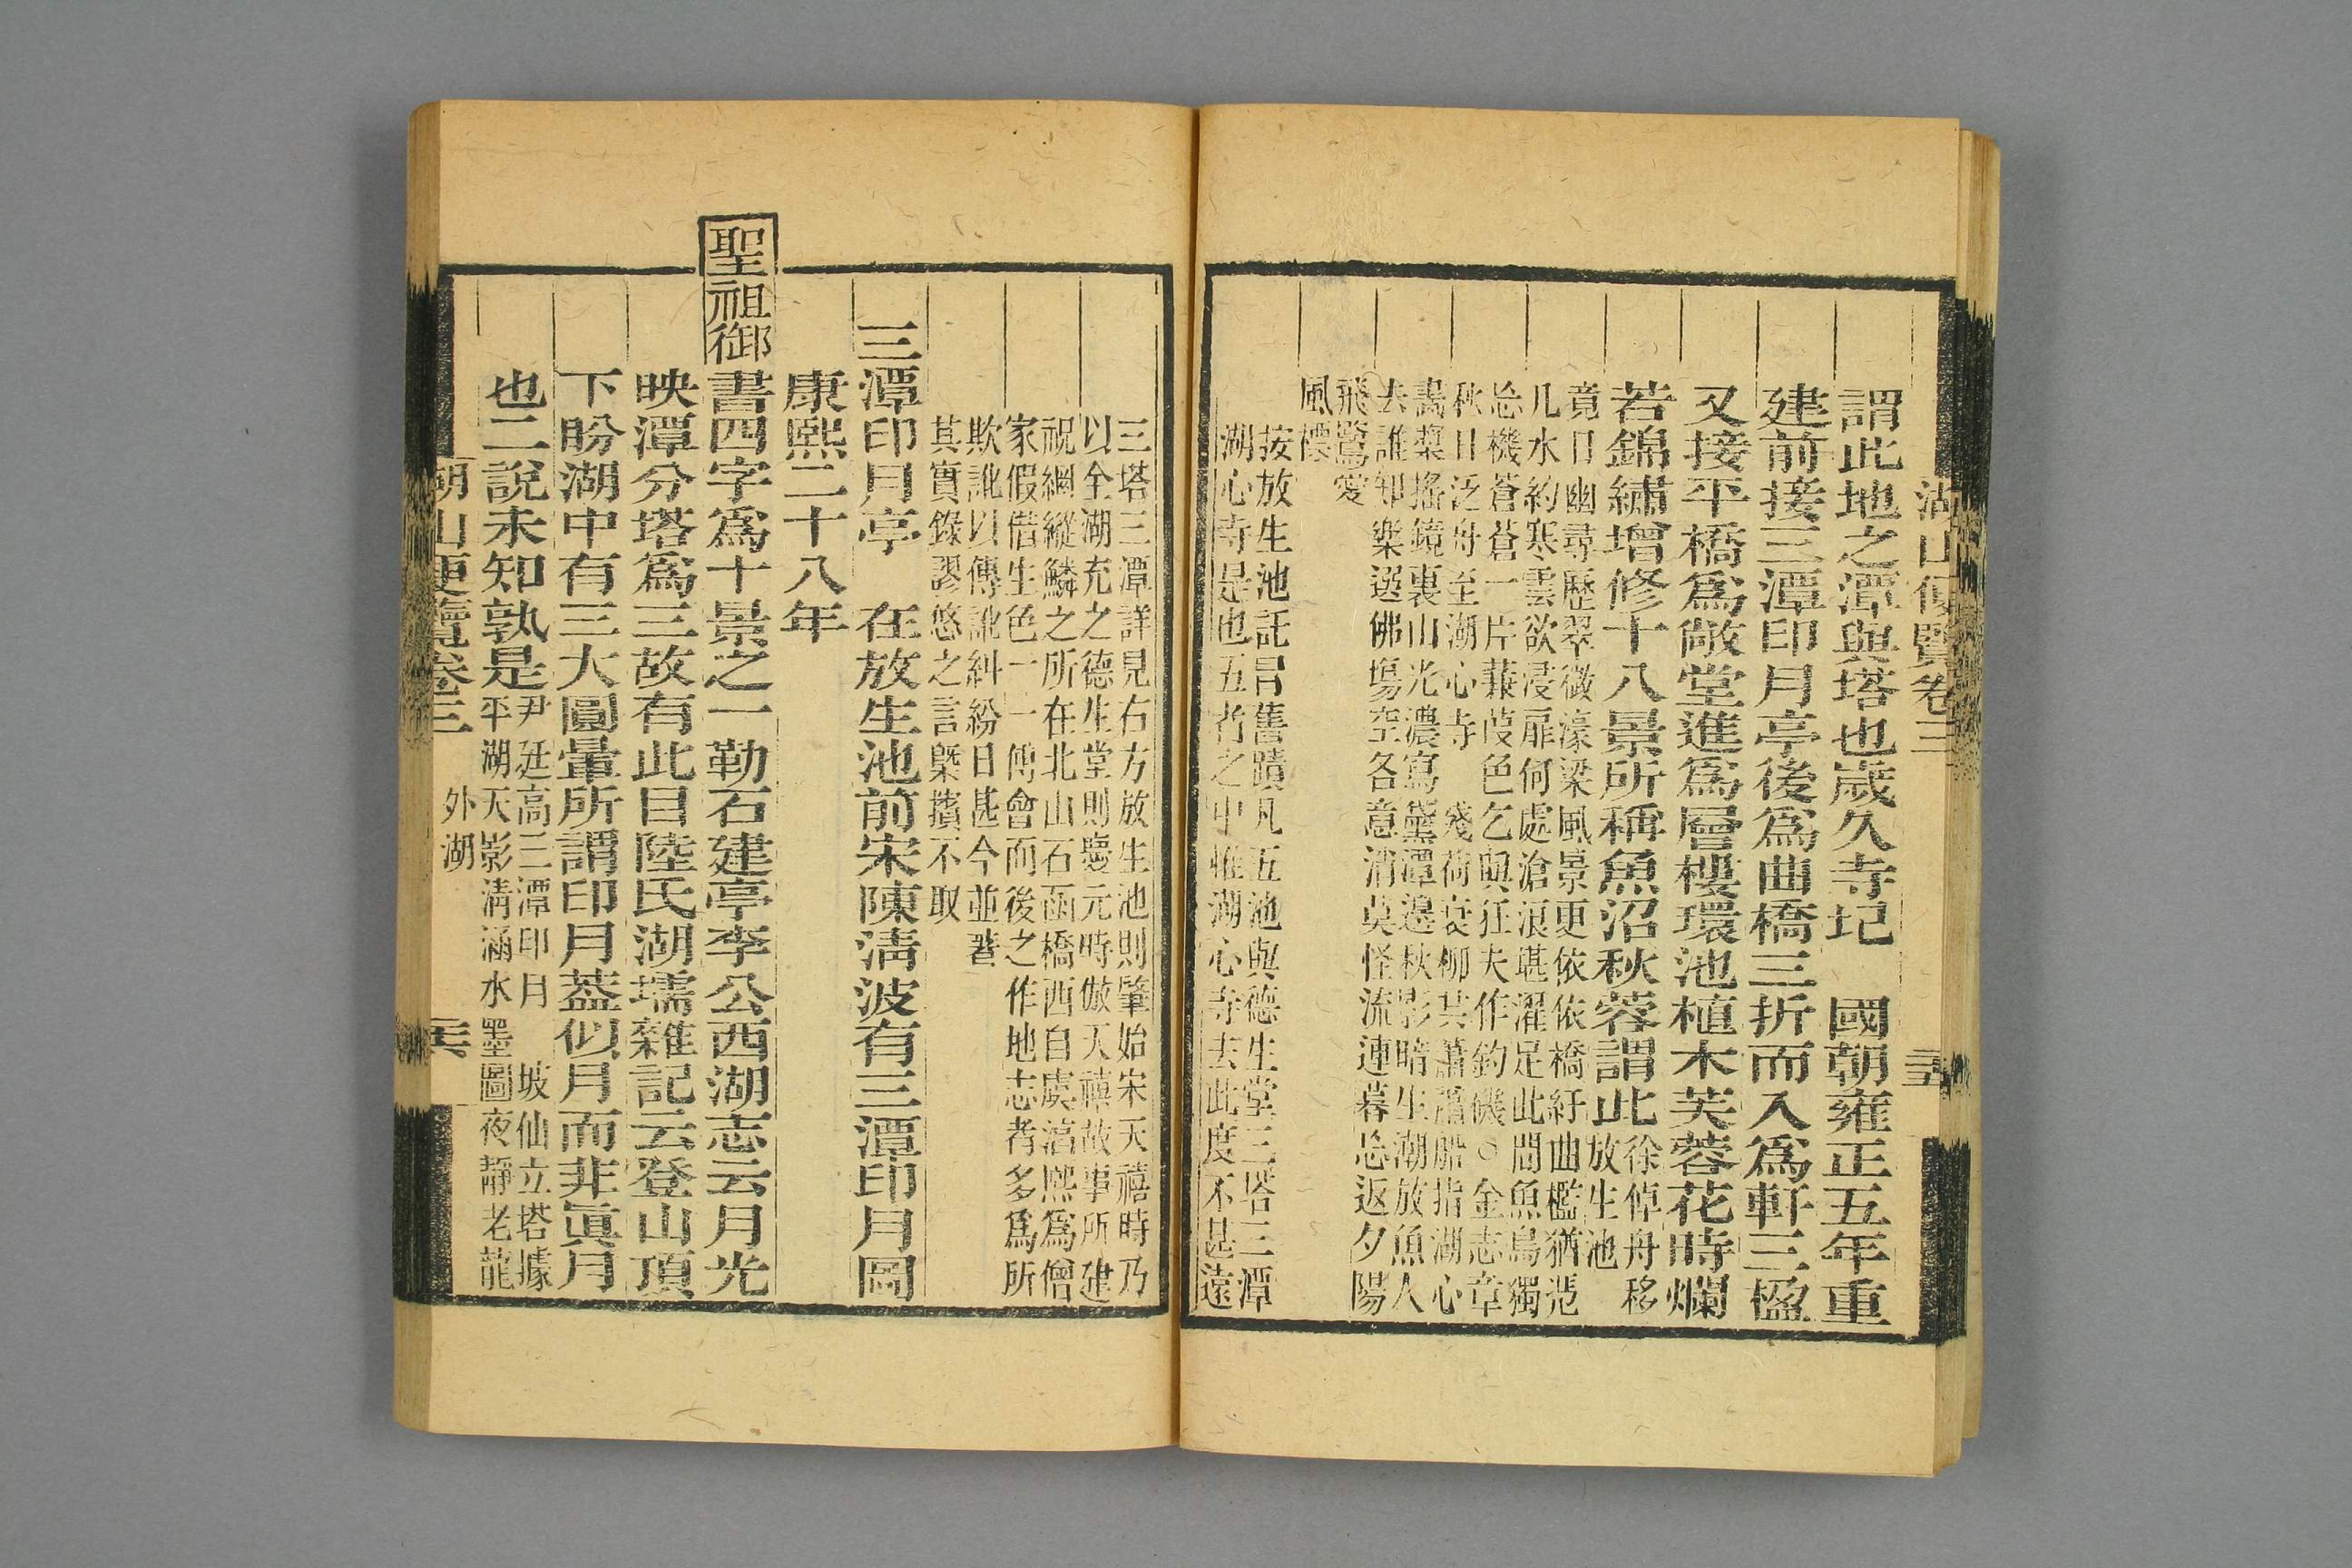 湖山便覽卷三
三五
謂此地之潭與塔也歲久寺圮　國朝雍正五年重
建前接三潭印月亭後爲曲橋三折而入爲軒三楹
又接平橋爲敞堂進爲層樓環池植木芙蓉花時爛
若錦繡增修十八景所稱魚沼秋蓉謂此
徐倬舟移
放生池
竟日幽尋歷翠微濠梁風景更依依橋紆曲檻猶慿
几水約寒雲欲浸扉何處滄浪堪濯足此間魚鳥獨
忘機蒼蒼一片蒹葭色乞與狂夫作釣磯○金志章
秋日泛舟至湖心寺　殘荷衰柳其蕭蕭船指湖心
畵槳搖鏡裏山光濃寫黛潭邊秋影暗生潮放魚人
去誰知樂選佛塲空各意消莫怪流連暮忘返夕陽
飛鷺愛
風標
按放生池託呂舊蹟凡五池與德生堂三塔三潭
湖心寺是也五者之中惟湖心寺去此度不甚遠
三塔三潭詳見右方放生池則肇始宋天禧時乃
以全湖充之德生堂則慶元時倣天禧故事所建
祝網縱鱗之所在北山石函橋西自虞淓熙爲僧
家假借生色一一傅會而後之作地志者多爲所
欺訛以傳訛糾紛日甚今並著
其實錄謬悠之言槩擯不取
三潭印月亭　在放生池前宋陳淸波有三潭印月圖
康熙二十八年
聖祖御書四字爲十景之一勒石建亭李公西湖志云月光
映潭分塔爲三故有此目陸氏湖壖雜記云登山頂
下盼湖中有三大圓暈所謂印月葢似月而非眞月
也二說未知孰是
尹廷高三潭印月　坡仙立塔據
平湖天影淸涵水墨圖夜靜老龍
湖山便覽卷三
外湖
三六